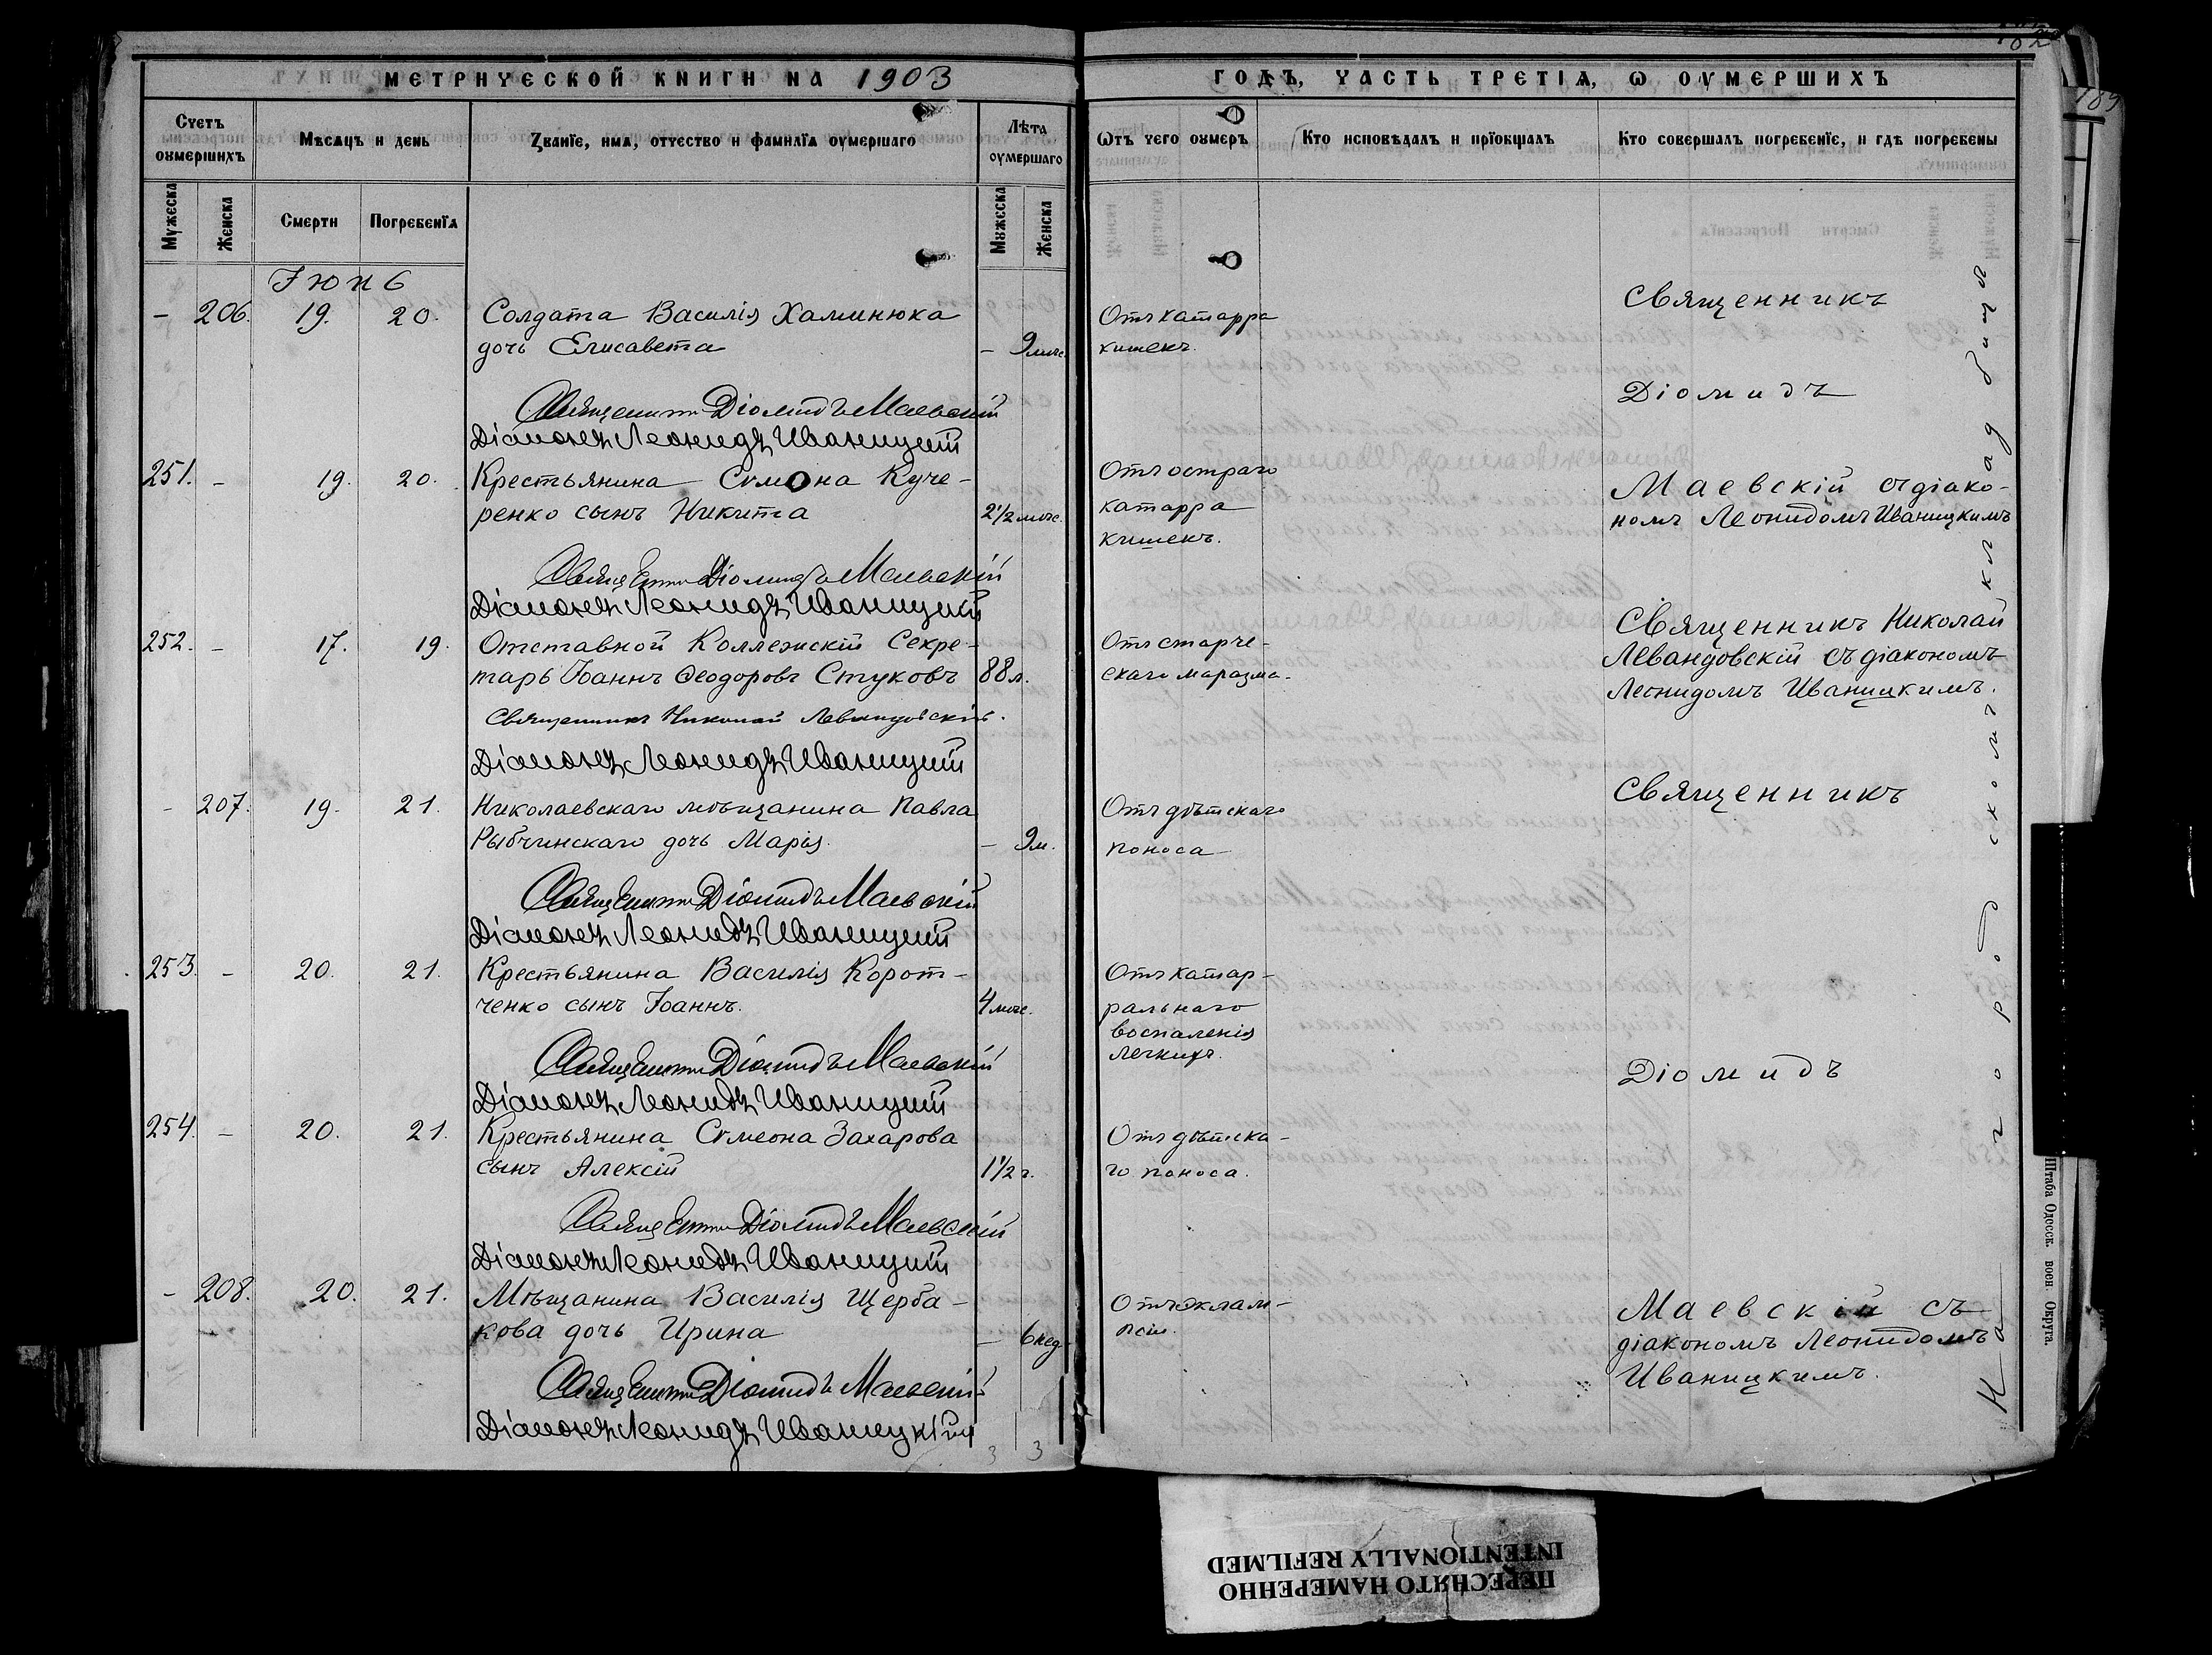 МЕТРИЧЕСКОЙ КНИГИ НА 1903
Счетъ оумершихъ
Мѣсяцъ и день
Званїе, имя, отчество и фамилїя оумершаго
Лѣта оумершаго
Мужеска
Женска
Смерти
Погребенїя
Мужеска
Женска
Іюнь
- 206. 19. 20. Солдата Василія Халинюка
дочь Елисавета - 9 мѣс.
Священникъ Діомидъ Маевскій
Діаконъ Леонидъ Иваницкій
251. - 19. 20. Крестьянина Сѵмеона Куче-
ренко сынъ Никита 2 1/2 мѣс.
Священникъ Діомидъ Маевскій
Діаконъ Леонидъ Иваницкій
252. - 17. 19. Отставной Коллежскій Секре-
тарь Іоаннъ Ѳеодоровъ Стуковъ 88 л.
Священникъ Николай Левандовскій.
Діаконъ Леонидъ Иваницкій
- 207. 19. 21. Николаевскаго мѣщанина Павла
Рыбчинскаго дочь Марія. - 9 м.
Священникъ Діомидъ Маевскій
Діаконъ Леонидъ Иваницкій
253. - 20. 21. Крестьянина Василія Корот-
ченко сынъ Іоаннъ. 4 мѣс.
Священникъ Діомидъ Маевскій
Діаконъ Леонидъ Иваницкій
254. - 20. 21. Крестьянина Сѵмеона Захарова
сынъ Алексій 1 1/2 г.
Священникъ Діомидъ Маевскій
Діаконъ Леонидъ Иваницкій
- 208. 20. 21. Мѣщанина Василія Щерба-
кова дочь Ирина - 6 нед.
Священникъ Діомидъ Маевскій
Діаконъ Леонидъ Иваницкій
3 3
182
189
ГОДЪ, ЧАСТЬ ТРЕТІЯ, Ѡ ОУМЕРШИХЪ
Ѿтъ чего оумеръ
Кто исповѣдалъ и прїобщалъ
Кто совершалъ погребенїе, и гдѣ погребены
Отъ катарра
кишекъ.
Отъ остраго
катарра
кишекъ.
Отъ старче-
скаго маразма.
Отъ дѣтскаго
поноса
Отъ катар-
ральнаго
воспаленія
легкихъ.
Отъ дѣтска-
го поноса.
Отъ эклам-
псіи.
Священникъ
Діомидъ
Маевскій съ діако-
номъ Леонидомъ Иваницкимъ
Священникъ Николай
Левандовскій съ діакономъ
Леонидомъ Иваницкимъ.
Священникъ
Діомидъ
Маевскій съ
діакономъ Леонидомъ
Иваницкимъ.
На городскомъ кладбищѣ
Штаба Одесск. воен. Округа.
ПЕРЕСНЯТО НАМЕРЕННО
INTENTIONALLY REFILMED